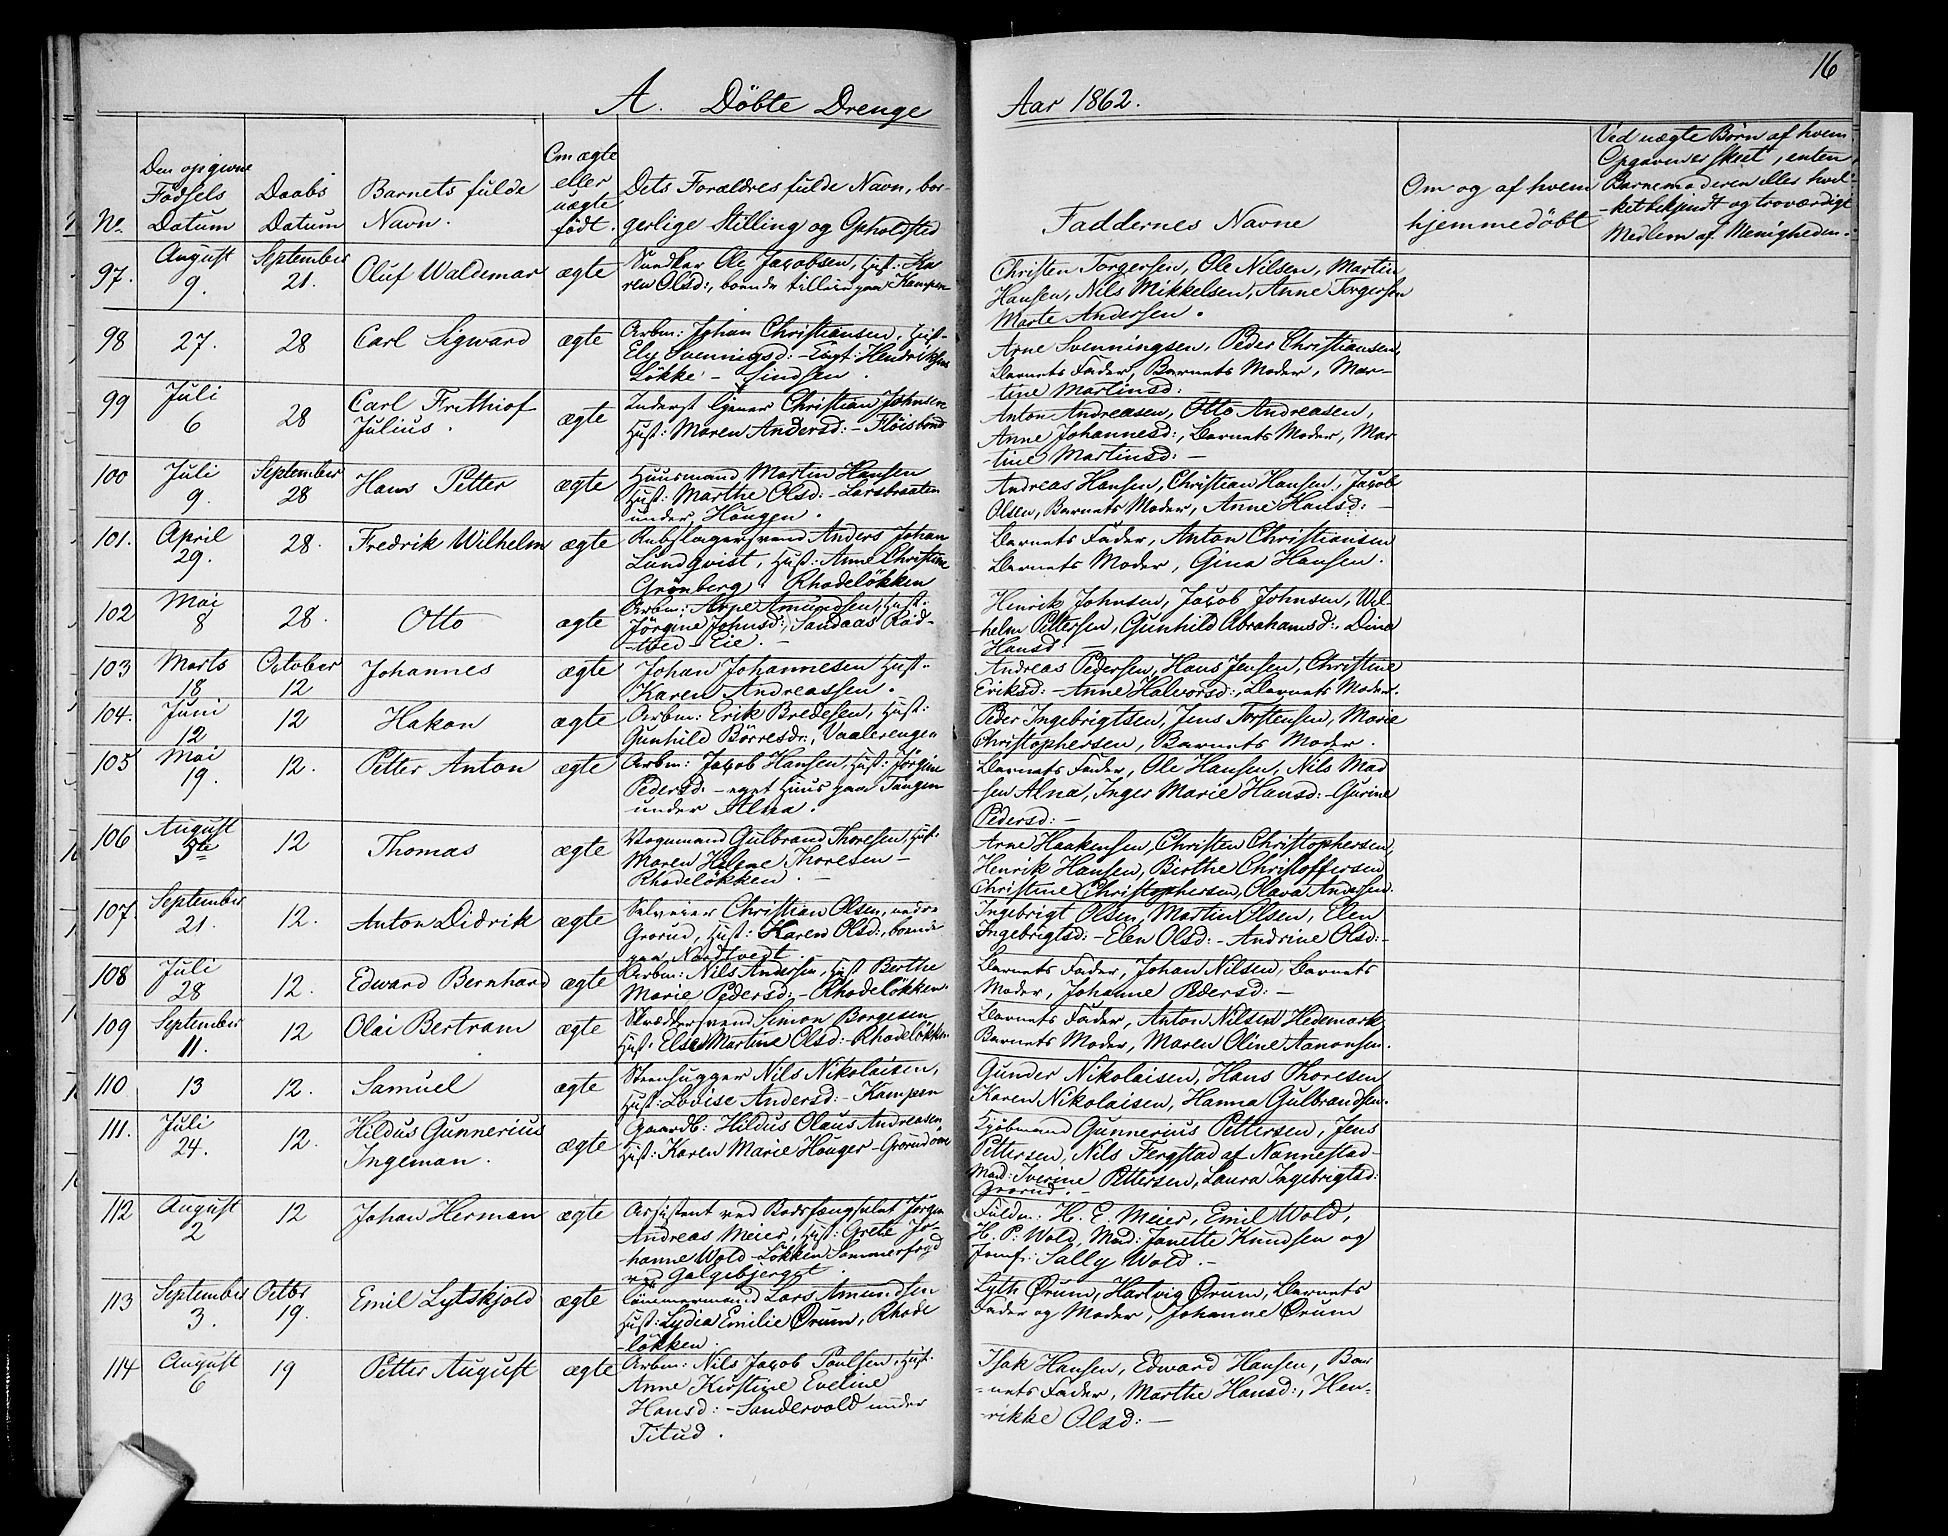 16
A. Döbte Drenge
Aar 1862.
No.
Den opgivne
Födsels
Datum
Daabs
Datum
Barnets fulde
Navn.
Om ægte
eller
uægte
födt.
Dets Forældres fulde Navn, bor-
gerlige Stilling og Opholdsted
Faddernes Navne
Om og af hvem
hjemmedöbt
Ved uægte Börn af hvem
Opgaven er skeet, enten
Barnemoderen eller hvil-
-ket bekjendt og troværdigt
Medlem af Menigheden.
97.
August
9.
September
21.
Oluf Waldemar
ægte
Ole Jacobsen, Hust: Ka
ren Olsd:, boende tilleie paa Kampen
Christen Torgersen, Ole Nilsen, Martin
Hansen, Nils Mikkelsen, Anne Torgersen
Marte Andersen.
98
27.
28
Carl Sigward
ægte
Arbm: Johan Christiansen, Hust-
Ely Svenningsd:- Hendriksens
Lökke -
Arne Svenningsen, Peder Christiansen,
Barnets Fader, Barnets Moder, Mar-
-tine Martinsd:
99
Juli
6
28
Carl Frithiof
Julius.
ægte
Inderst Christian Johnsen
Hust: Maren Andersd:- Flöisbond
Anton Andreasen, Otto Andreasen,
Anne Johannesd:, Barnets Moder, Mar
-tine Martinsd:-
100
Juli
9.
September
28
Hans Petter
ægte
Huusmand Martin Hansen
Hust: Marthe Olsd:- Larsbraaten
under Haugen.
Andreas Hansen, Christian Hansen, Jacob
Olsen, Barnets Moder, Anne Hansd:-
101.
April
29.
28.
Fredrik Wilhelm
ægte
Rebslagersvend Anders Johan
Lundqvist, Hust: Anne Christine
Grönberg Rhodelökken
Barnets Fader, Anton Christiansen
Barnets Moder, Gina Hansen.
102
Mai
8
28.
Otto
ægte
Arbm: Arne Amundsen, Hust:
Jörgine Johnsd:, Sandaas
Henrik Johnsen, Jacob Johnsen, Wil-
-helm Pettersen, Gunhild Abrahamsd:, Dina
Hansd:-
103
Marts
18
October
12
Johannes
ægte
Johan Johannesen Hust:
Karen Andreassen.
Andreas Pedersen, Hans Jensen, Christine
Eriksd:- Anne Halvorsd:, Barnets Moder.
104.
Juni
12
12
Hakon
ægte
Arbm: Erik Bredesen, Hust:
Gunhild Börresdr:, Vaalerengen
Peder Ingebrigtsen, Jens Torstensen, Marie
Christophersen, Barnets Moder.
105
Mai
19.
12.
Petter Anton
ægte
Arbm: Jacob Hansen, Hust: Jörgine
Pedersd:- eget Huus paa Tangen
under Alna.
Barnets Fader, Ole Hansen, Nils Mad
-sen Alna, Inger Marie Hansd:- Gurine
Pedersd:-
106
August
5te
12
Thomas
ægte
Vognmand Gulbrand Thoresen, Hust:
Maren Helene Thoresen -
Rhodelökken. -
Arne Haakensen, Christen Christophersen,
Henrik Hansen, Birthe Christoffersen
Christine Christophersen, Olava Andersen.
107.
September
21.
12.
Anton Didrik
ægte
Selveier Christian Olsen, nedre
Grorud, Hust: Karen Olsd:, boende
paa Nordtvedt
Ingebrigt Olsen, Martin Olsen, Elen
Ingebrigtsd:- Elen Olsd:- Andrine Olsd:-
108
Juli
28
12.
Edward Bernhard
ægte
Arbm: Nils Andersen, Hust Berthe
Marie Pedersd:- Rhodelökken.
Barnets Fader, Johan Nilsen, Barnets
Moder, Johanne Pedersd:-
109
September
11.
12
Olai Bertram
ægte
Skræddersvend Simon Borgesen
Hust: Else Martine Olsd:- Rhodelökken
Barnets Fader, Anton Nilsen Hedemark,
Barnets Moder, Maren Oline Aanonsen.
110
13
12.
Samuel
ægte
Steenhugger Nils Nikolaisen,
Hust: Lovise Andersd:- Kampen
Gunder Nikolaisen, Hans Thoresen
Karen Nikolaisen, Hanna Gulbrandsen.
111.
Juli
24.
12.
Hildus Gunnerius
Ingeman.
ægte
Gaardb: Hildus Olaus Andreasen
Hust: Karen Marie Hauger - Grorud
Kjöbmand Gunnerius Pettersen, Jens
Pettersen, Nils Fergstad af Nannestad-
Mad: Iverine Pettersen, Laura Ingebrigtsd:
Grorud. -
112
August
2
12
Johan Herman
ægte
Assistent ved Bodsfængselet Jörgen
Andreas Meier, Hust: Grete Jo-
-hanne Wold - Lökken Sommerfryd
ved Galgebjerget.
Fuldm: H. E. Meier, Emil Wold,
H. P. Wold, Mad: Janette Knudsen og
Jomf: Sally Wold. -
113
September
3.
Octbr
19.
Emil Lytskjold
ægte
Tömmermand Lars Amundsen
Hust: Lydia Emilie Örum, Rhode
-lökken.
Lyth Örum, Hartvig Örum, Barnets
Fader og Moder, Johanne Örum
114
August
6
19
Petter August
ægte
Arbm: Nils Jacob Poulsen, Hust:
Anne Kirstine Eveline
Hansd:- Sandervold under
Titud.
Isak Hansen, Edward Hansen, Bar
-nets Fader, Marthe Hansd:, Hen-
-rikke Olsd:-